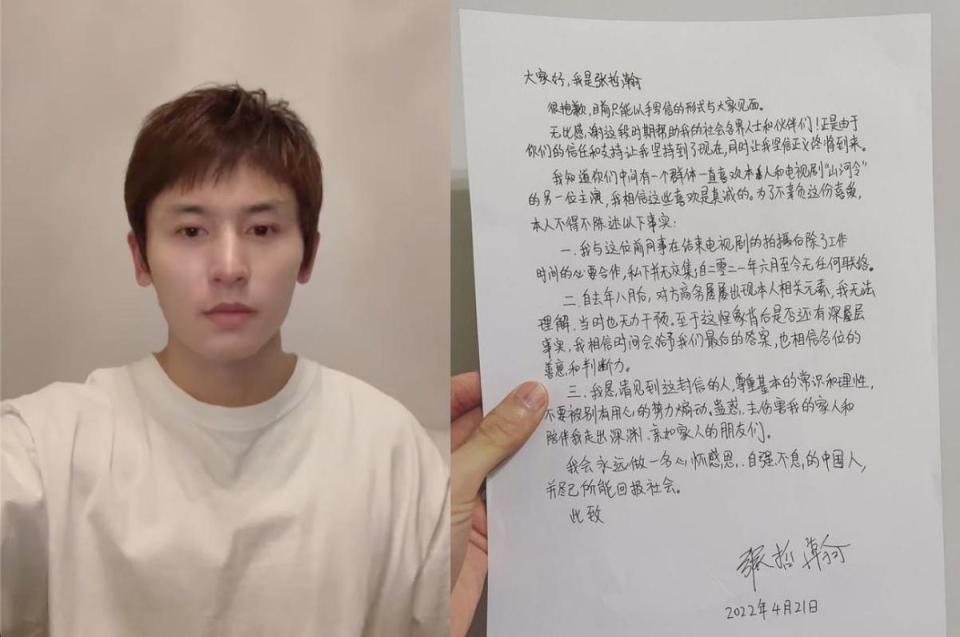 大家好，我是张哲瀚
很抱歉，目前只能以手写信的形式与大家见面。
无比感谢这段时期帮助我的社会各界人士和伙伴们！正是由于
你们的信任和支持让我坚持到了现在，同时让我坚信正义终将到来。
我知道你们中间有一个群体一直喜欢本人和电视剧“山河令”
的另一位主演，我相信这些喜欢是真诚的。为了不辜负这份喜爱，
本人不得不陈述以下事实：
一．我与这位前同事在结束电视剧的拍摄后除了工作
时间的必要合作，私下并无交集；自二零二一年六月至今无任何联络。
二．自去年八月后，对方商务屡屡出现本人相关元素，我无法
理解．当时也无力干预。至于这怪象背后是否还有深层
事实，我相信时间会给予我们最后的答案，也相信各位的
善意和判断力。
三．我恳请见到这封信的人，尊重基本的常识和理性，
不要被别有用心的势力煽动．蛊惑．去伤害我的家人和
陪伴我走出深渊．亲如家人的朋友们。
我会永远做一名心怀感恩．自强不息的中国人，
并尽己所能回报社会。
此致
张哲瀚
2022年4月21日